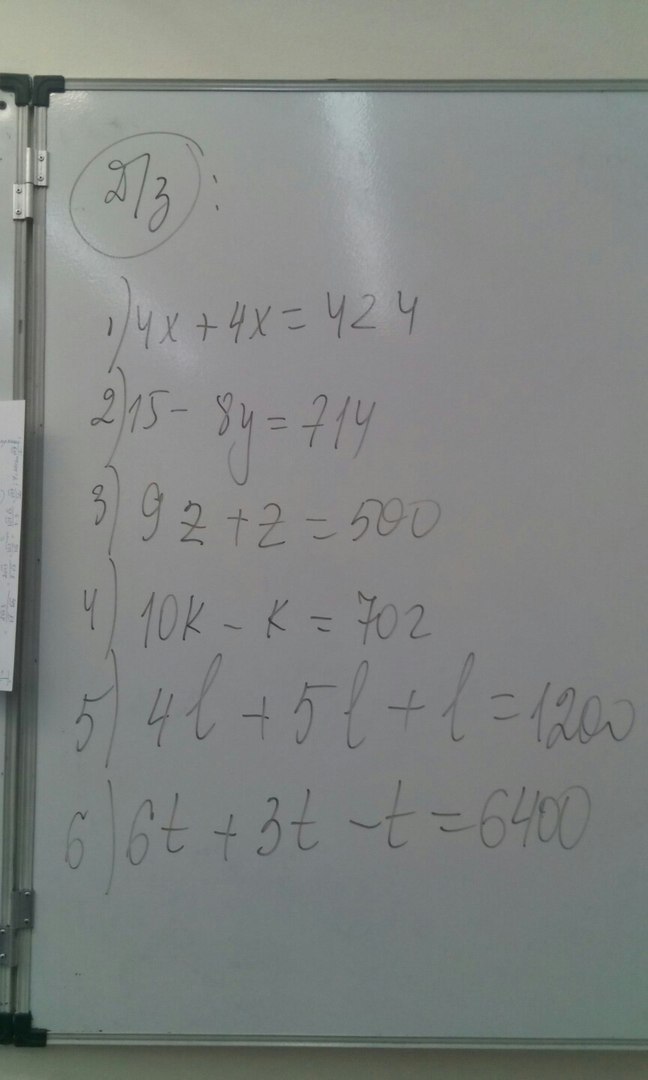 Д/з :
1) 4x + 4x = 424
2) 15 - 8y = 714
3) 9z + z = 500
4) 10k - k = 702
5) 4l + 5l + l = 1200
6) 6t + 3t - t = 6400